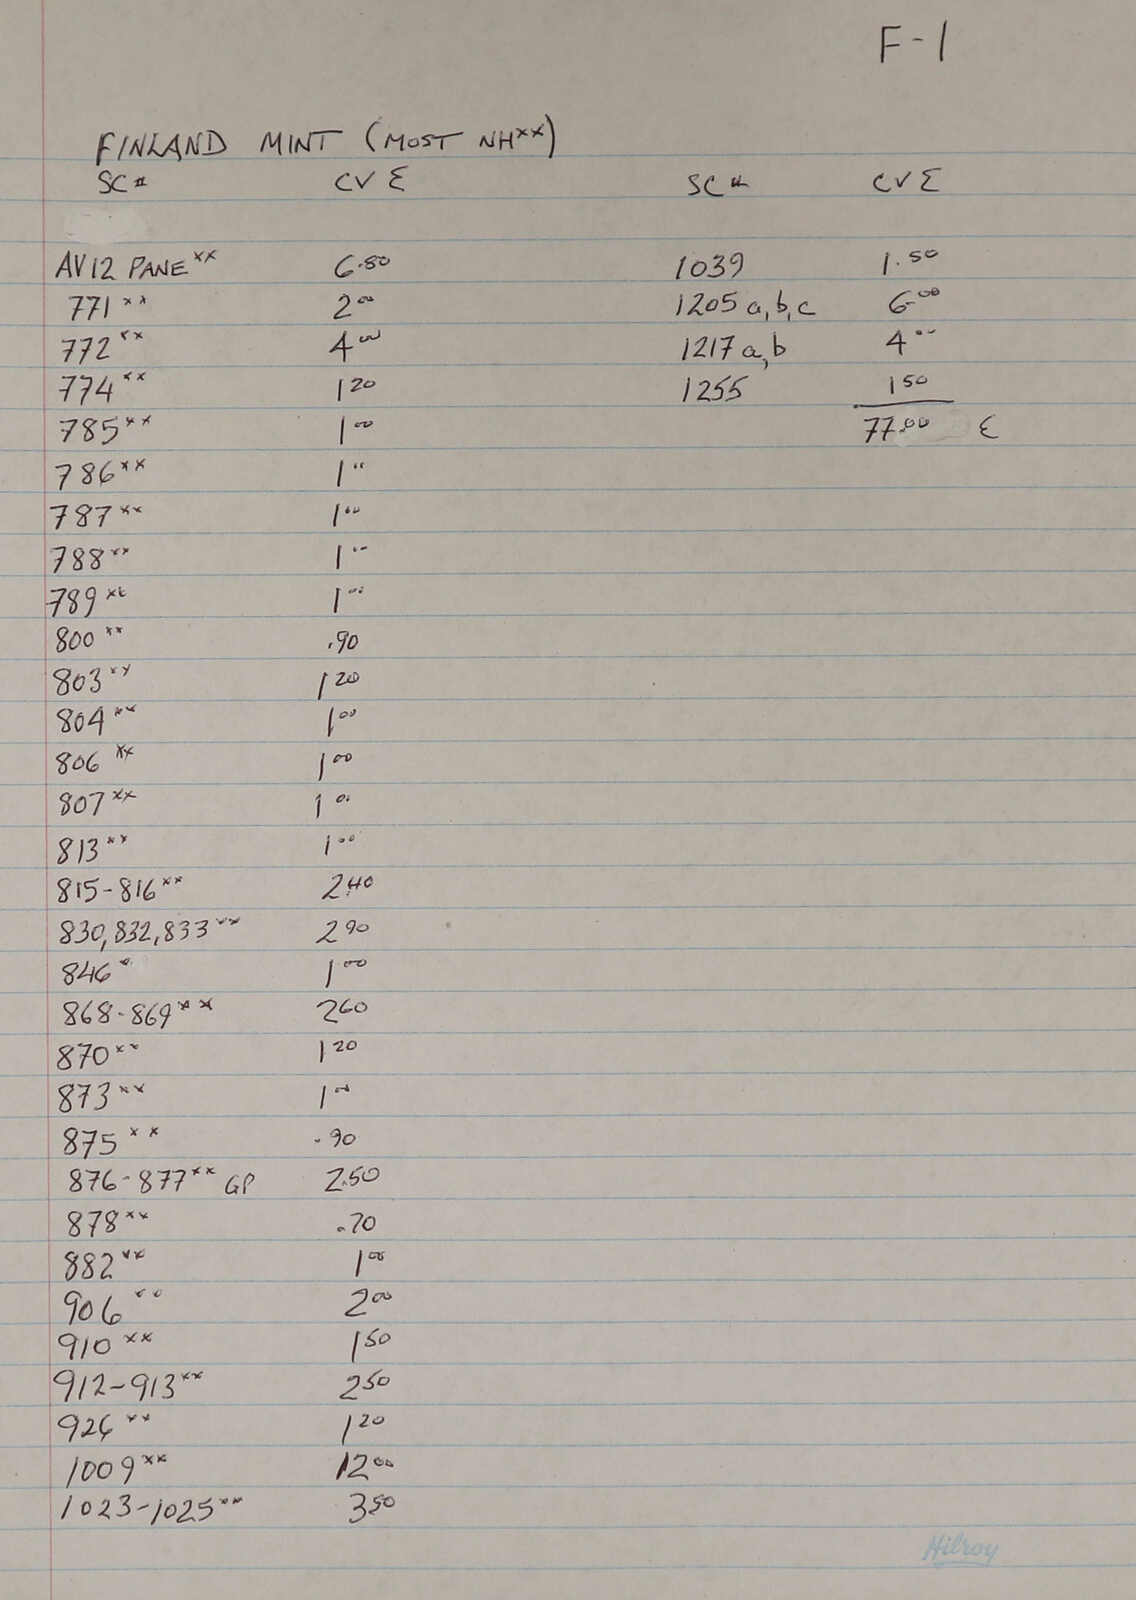 F-1
FINLAND MINT (MOST NHxx)
SC# CV Σ SC# CV Σ
AV12 PANE xx 6.80 1039 1.50
771 xx 2 00 1205 a,b,c 6.00
772 xx 4 00 1217 a,b 4 00
774 xx 1 20 1255 1 50
785 xx 1 00 77.00 Σ
786 xx 1 "
787 xx 1 00
788 xx 1 00
789 xx 1 00
800 xx .90
803 xx 1 20
804 xx 1 00
806 xx 1 00
807 xx 1 00
813 xx 1 00
815-816 xx 2.40
830,832,833 xx 2 90
846 x 1 00
868-869 xx 2 60
870 xx 1 20
873 xx 1 00
875 xx .90
876-877 xx GP 2.50
878 xx .70
882 xx 1 00
906 xx 2 00
910 xx 1 50
912-913 xx 2 50
926 xx 1 20
1009 xx 12 00
1023-1025 xx 3 50
Hilroy